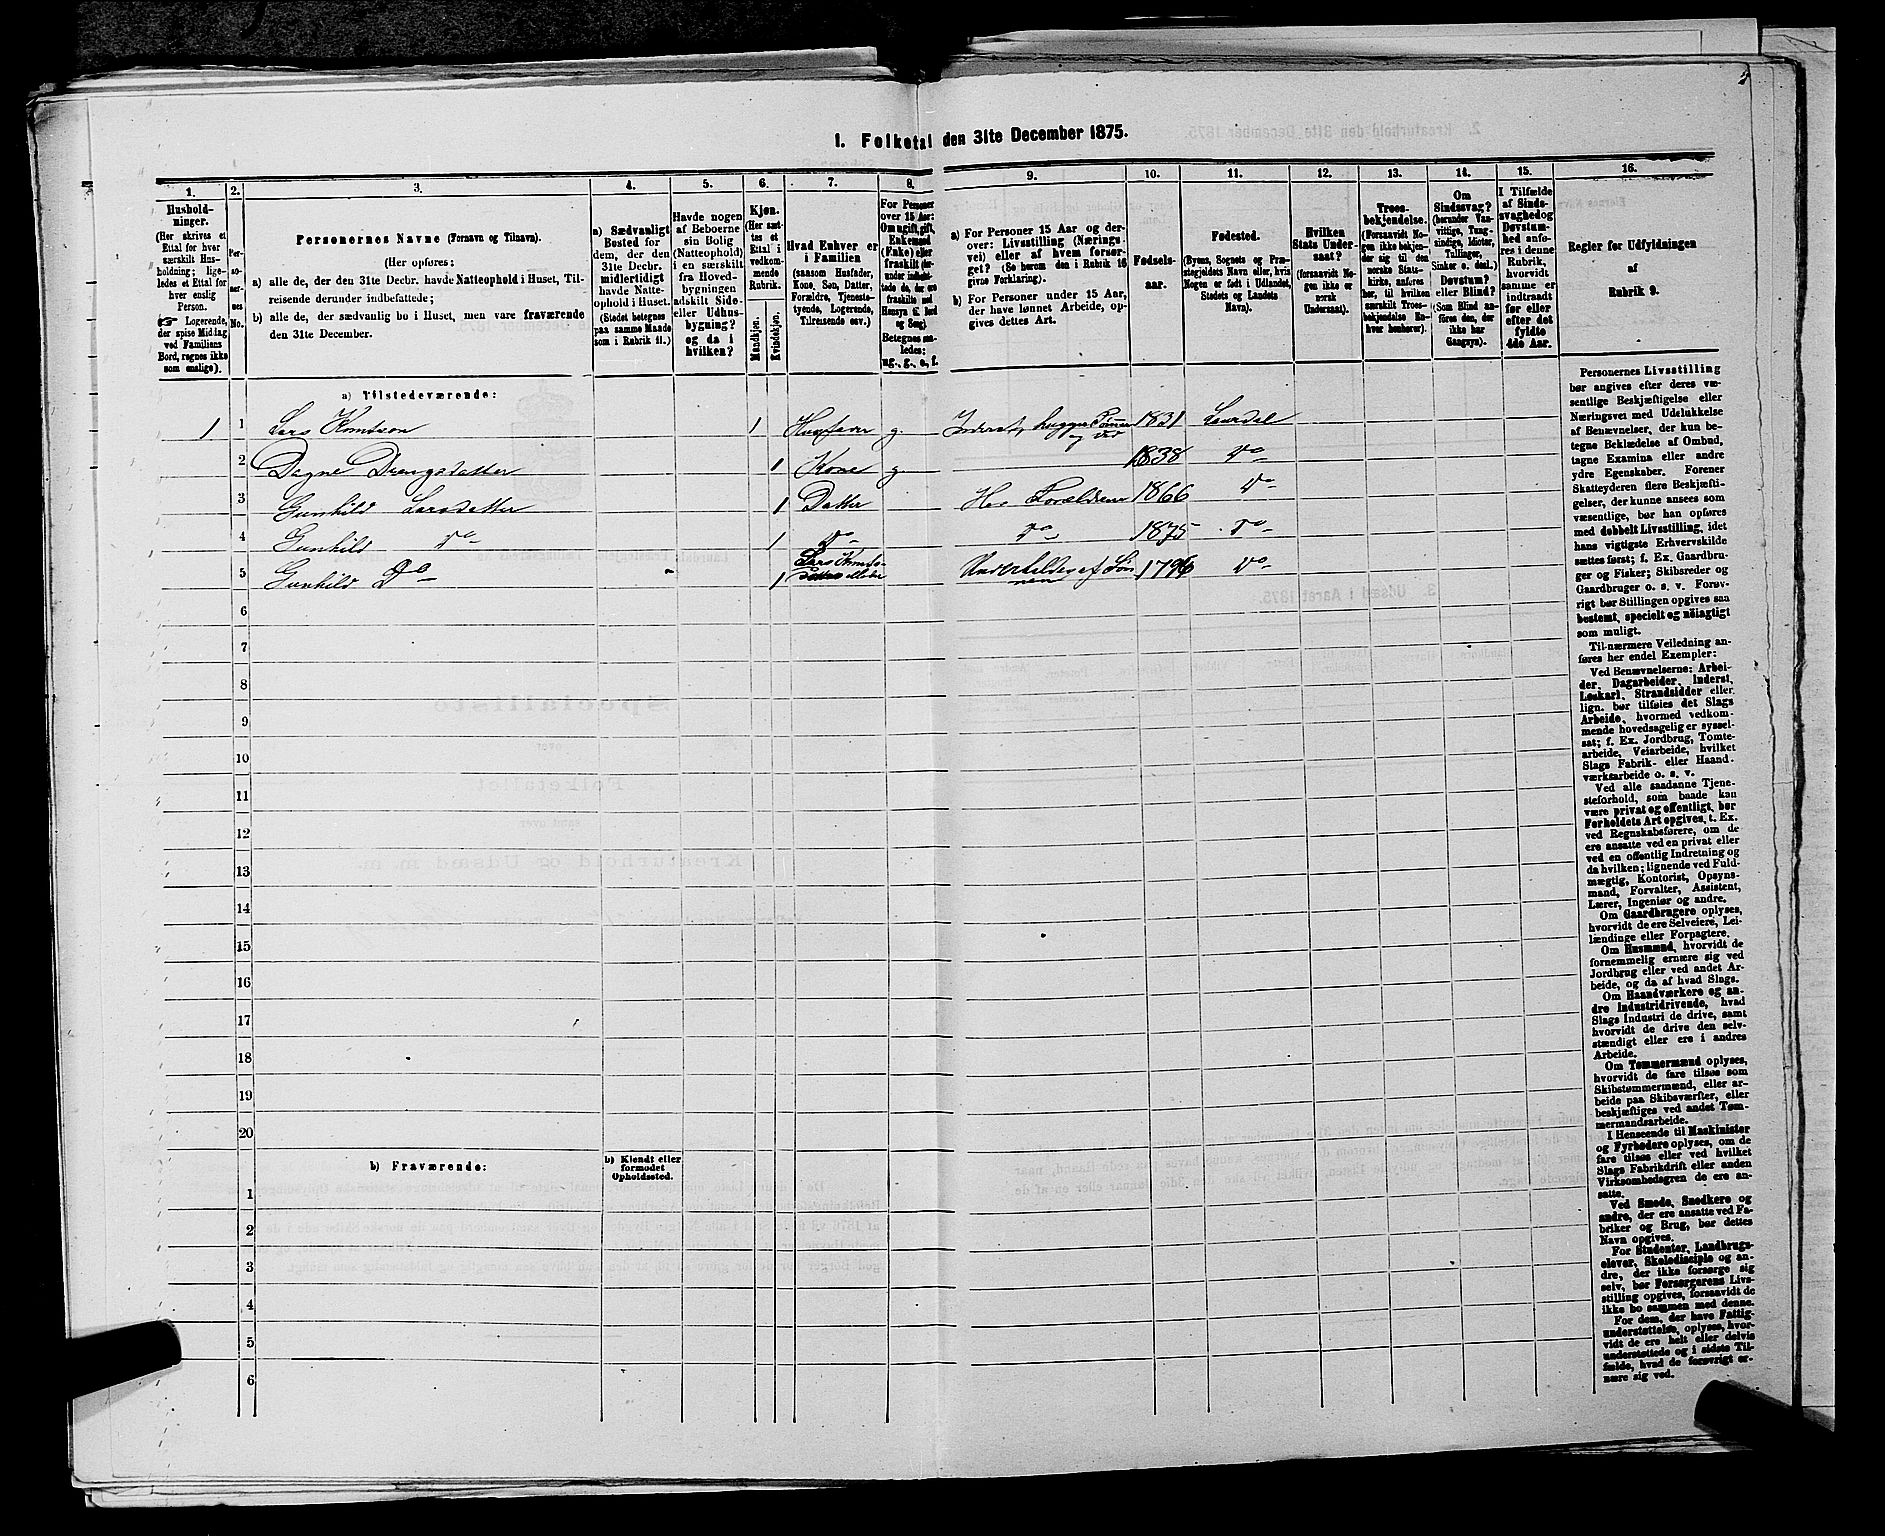 1. Folketal den 31te December 1875.
1. 2. 3. 4. 5. 6. 7. 8. 9. 10. 11. 12. 13. 14. 15. 16.
Hushold-
ninger.
(Her skrives et
Ettal for hver
særskilt Hus-
holdning; lige-
ledes et Ettal for
hver enslig
Person.
☞ Logerende,
der spise Middag
ved Familiens
Bord, regnes ikke
som enslige).
Per-
so-
ner-
nes
No.
Personernes Navne (Fornavn og Tilnavn).
(Her opføres:
a) alle de, der den 31te Decbr. havde Natteophold i Huset, Til-
reisende derunder indbefattede;
b) alle de, der sædvanlig bo i Huset, men vare fraværende
den 31te December.
a) Sædvanligt
Bosted for
dem, der den
31te Decbr.
midlertidigt
havde Natte-
ophold i Huset.
(Stedet betegnes
paa samme Maade
som i Rubrik 11.)
Havde nogen
af Beboerne
sin Bolig
(Natteophold)
i en særskilt
fra Hoved-
bygningen
adskilt Side-
eller Udhus-
bygning?
og da i
hvilken?
Kjøn.
(Her sæt-
tes et
Ettal i
vedkom-
mende
Rubrik.
Mandkjøn.
Kvindekjøn.
Hvad Enhver er
i Familien
(saasom Husfader,
Kone, Søn, Datter,
Forældre, Tjeneste-
tyende, Logerende,
Tilreisende osv.)
For Personer
over 15 Aar:
Om ugift, gift,
Enkemand
(Enke) eller
fraskilt
Betegnes saa-
ledes:
ug., g., e., f.
a) For Personer 15 Aar og der-
over: Livsstilling (Nærings-
vei) eller af hvem forsør-
get? (Se herom den i Rubrik 16
givne Forklaring).
b) For Personer under 15 Aar,
der have lønnet Arbeide, op-
gives dettes Art.
Fødsels-
aar.
Fødested.
(Byens, Sognets og Præ-
stegjeldets Navn eller, hvis
Nogen er født i Udlandet,
Stedets og Landets
Navn).
Hvilken
Stats Under-
saat?
(forsaavidt No-
gen ikke er
norsk
Undersaat).
Troes-
bekjendelse.
(Forsaavidt No-
gen ikke bekjen-
der sig til den
norske Stats-
kirke, anføres
her, til hvilken
særskilt Troes-
bekjendelse En-
hver henhører).
Om
Sindssvag?
(herunder Van-
vittige, Tung-
sindige, Idioter,
Tullinger,
Sinker o. desl.)
Døvstum?
eller Blind?
(Som Blind an-
føres den, der
ikke har
Gangsyn).
I Tilfælde
af Sinds-
svaghed og
Døvstum-
hed anfø-
res i denne
Rubrik,
hvorvidt
samme er
indtraadt
før eller
efter det
fyldte
4de Aar.
Regler for Udfyldningen
af
Rubrik 9.
a) Tilstedeværende:
1 1 Lars Komtson 1 Husfader g. Inderst, hugger Tømmer og Ved 1831 Laurdal
2 Dagne Drengsdatter 1 Kone g. 1838 Do
3 Gunhild Larsdatter 1 Datter Hos Forældrene 1866 Do
4 Gunhild Do 1 Do Do 1875 Do
5 Gunhild Do 1 Underholdes af Sønnen 1796 Do
6
7
8
9
10
11
12
13
14
15
16
17
18
19
20
b) Fraværende:
b) Kjendt eller
formodet
Opholdssted.
1
2
3
4
5
6
Personernes Livsstilling
bør angives efter deres væ-
sentlige Beskjæftigelse eller
Næringsvei med Udelukkelse
af Benævnelser, der kun be-
tegne Beklædelse af Ombud,
tagne Examina eller andre
ydre Egenskaber. Forener
Skatteyderen flere Beskjæfti-
gelser, der kunne ansees som
væsentlige, bør han opføres
med dobbelt Livsstilling, idet
hans vigtigste Erhvervskilde
sættes først; f. Ex. Gaardbru-
ger og Fisker; Skibsreder og
Gaardbruger o. s. v. Forøv-
rigt bør Stillingen opgives saa
bestemt, specielt og nøiagtigt
som muligt.
Til nærmere Veiledning an-
føres her endel Exempler:
Ved Benævnelserne: Arbei-
der, Dagarbeider, Inderst,
Løskarl, Strandsidder eller
lign. bør tilføies det Slags
Arbeide, hvormed vedkom-
mende hovedsagelig er syssel-
sat; f. Ex. Jordbrug, Tomte-
arbeide, Veiarbeide, hvilket
Slags Fabrik- eller Haand-
værksarbeide o. s. v.
Ved alle saadanne Tjene-
steforhold, som baade kan
være privat og offentligt, bør
Forholdets Art opgives, t. Ex.
ved Regnskabsførere, om de
ere ansatte ved en privat eller
ved en offentlig Indretning og
da hvilken; lignende ved Fuld-
mægtig, Kontorist, Opsyns-
mand, Forvalter, Assistent,
Lærer, Ingeniør og andre.
Om Gaardbrugere oplyses,
hvorvidt de ere Selveiere, Lei-
lændinge eller Forpagtere.
Om Husmænd, hvorvidt de
fornemmelig ernære sig ved
Jordbrug eller ved andet Ar-
beide, og da af hvad Slags.
Om Haandværkere og an-
dre Industridrivende, hvad
Slags Industri de drive, samt
hvorvidt de drive den selv-
stændigt eller ere i andres
Arbeide.
Om Tømmermænd oplyses,
hvorvidt de fare tilsøs som
Skibstømmermænd, eller ar-
beide paa Skibsværfter, eller
beskjæftiges ved andet Tøm-
mermandsarbeide.
I Henseende til Maskinister
og Fyrbødere oplyses, om de
fare tilsøs eller ved hvilket
Slags Fabrikdrift eller anden
Virksomhedsgren de ere an-
satte.
Ved Smede, Snedkere og
andre, der ere ansatte ved Fa-
briker og Brug, bør dettes
Navn opgives.
For Studenter, Landbrugs-
elever, Skoledisciple og an-
dre, der ikke forsørge sig
selv, bør Forsørgerens Livs-
stilling opgives, forsaavidt de
ikke bo sammen med denne.
For dem, der have Fattig-
understøttelse, oplyses, hvor-
vidt de ere helt eller delvis
understøttede og i sidste Til-
fælde, hvad de forøvrigt er-
nære sig ved.